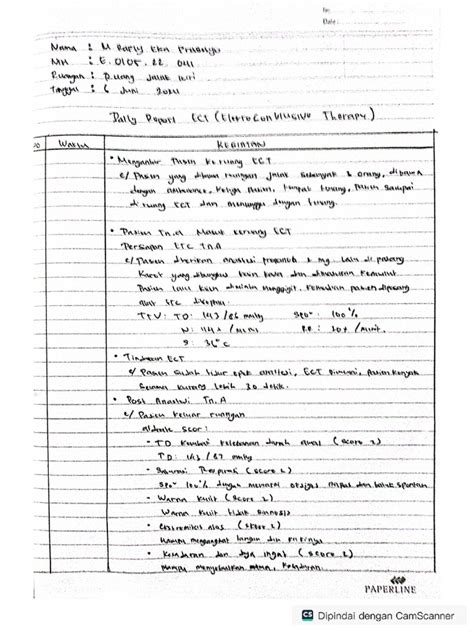 No.
Date:
Nama : M Rafly Eka Prasetyo
NIM : E.0105.22.041
Ruangan : Ruang Jalak
Tanggal : 6 Juni 2024
Daily Report ECT (Elektrokonvulsive Therapy)
No Waktu KEGIATAN
• Mengantar Pasien ke ruang ECT
e/ Pasien yang dibawa ruangan Jalak sebanyak 8 orang, dibawa
dengan ambulance, Pasien sampai
di ruang ECT dan menunggu dengan tenang.
• Pasien Tn.A Masuk ke ruang ECT
Persiapan ETC Tn.A
e/ Pasien diberikan anastesi propofol mg. lalu di pasang
Karet yang dibungkus kain kasa dan dimasukan Kemulut
Pasien lalu menggigit. Kemudian pasien dipasang
alat ETC
TTV : TD : 143/86 mmHg SPO² : 100 %
N : x / mnt RR : 20x / menit.
S : 36°C
• Tindakan ECT
e/ Pasien sudah tidur efek anastesi, ECT Dimulai, Pasien Kejang
Selama kurang lebih 30 detik.
• Post Anastesi Tn. A
e/ Pasien keluar ruangan
aldrete scor :
• TD Kembali tekanan darah awal (score 2)
TD : 143 / 87 mmHg
• Saturasi Respirasi (score 2)
SPO² 100% dengan memakai oksigen napas dan batuk spontan
• Warna Kulit (score 2)
Warna Kulit tidak sianosis
• Ekstremitas atas (score 2)
Mampu mengangkat tangan dan
• Kesadaran dan daya ingat (score 2)
Mampu menyebutkan nama,
PAPERLINE
CS Dipindai dengan CamScanner